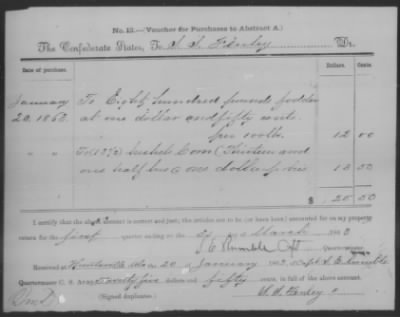 No. 13.—(Voucher for Purchases to Abstract A.)
The Confederate States, To S. S. Fenley Dr.
Date of purchase. Dollars. Cents.
January To Eight hundred pounds fodder
20, 1863. at one dollar and fifty cents
per 100 lb. 12 00
" " To (13½) bushels Corn (Thirteen and
one half bus @ one dollar per bus 13 50
$ 25 50
I certify that the above account is correct and just; the articles are to (or have been) accounted for on my property
return for the first quarter ending on the of March 1863
Quartermaster
Received at Huntsville 20 January 1863, of Capt
Quartermaster C. S. Army, Twenty five dollars and fifty cents, in full of the above account.
(Signed duplicates.)